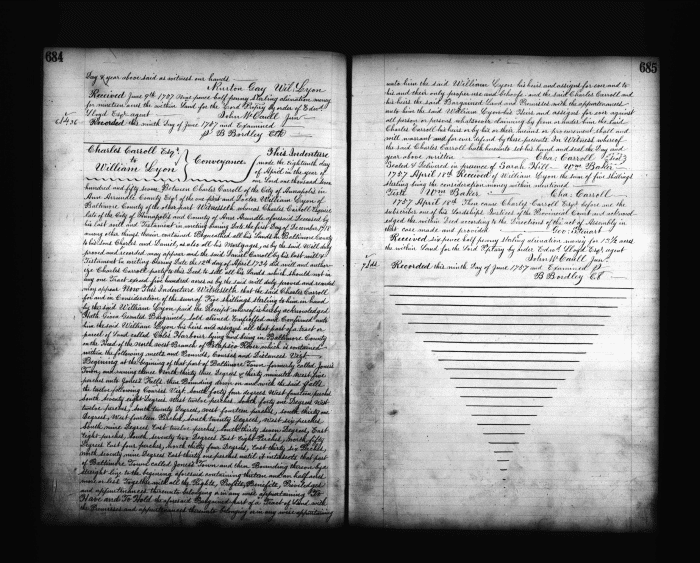 684
Day & year above said as witness our hands
Nuxton Gay Wil. Lyon
Received June 9th 1757 Nine pence half penny Sterling alienation money
for nineteen acres the within Land for the Lord Propry by order of Edwd
Lloyd Esqr. agent John McCaull Junr
Recorded this ninth Day of June 1757 and Examined
P B Bordley Clk
Charles Carroll Esqr.
to
William Lyon
Conveyance
This Indenture
made the Eighteenth day
of April in the year of
our Lord one thousand seven
hundred and fifty seven Between Charles Carroll of the City of Annapolis in
Ann Arrundle County Esqr. of the one part and Doctor William Lyon of
Baltimore County of the other part Witnesseth whereas Charles Carroll Esquire
late of the City of Annapolis and County of Ann Arundle aforesaid Deceased by
his last will and Testament in writing bearing date the first Day of December 1718
among other things contained Bequeathed all his Lands in Baltimore County
to his Sons Charles and Daniel, as also all his Mortgages, as by the said Will duly
proved and recorded may appear and the said Daniel Carroll by his last will &
Testament in writing bearing Date the 12th day April 1734 did will and authorize
Charles Carroll party to this Deed to sell all his Lands which should not in
any one Tract exceed five hundred acres as by the said will duly proved and recorded
may appear Now This Indenture Witnesseth that the said Charles Carroll
for and in Consideration of the sum of Five shillings sterling to him in hand
by the said William Lyon paid the Receipt whereof is hereby acknowledged
Hath Given Granted Bargained, Sold aliened Enfeoffed and Confirmed unto
him the said William Lyon his heirs and assigns all that part of a tract or
parcel of Land called Coles Harbour lying and being in Baltimore County
on the Head of the North west Branch of Patapsco River which is contained
within the following meets and Bounds, Courses and Distances Vizt
Beginning at the beginning of that part of Baltimore Town formerly called Jones's
Town, and running thence North thirty three Degrees & thirty minutes West five
perches unto Jones's Falls then Bounding down on and with the said falls
the twelve following Courses Vizt. South forty four degrees West fourteen perches
South seventy eight Degrees West twelve perches South forty one Degrees West
twelve perches, South twenty Degrees, West fourteen perches, South thirty one
Degrees, West fourteen Perches, South twenty Degrees, West six perches,
South nine Degrees East twelve perches, South thirty seven Degrees, East
Eight perches, South seventy two Degrees East Eight Perches, North fifty
Degrees East four perches, North thirty four Degrees, East thirty six Perches,
North seventy nine Degrees East thirty one perches until it intersects that part
of Baltimore Town called Jones's Town and then Bounding thereon by a
straight line to the beginning aforesaid containing thirteen and an half acres
more or less Together with all the Rights, Profits, Benefits, Priviledges
and appurtenances thereunto belonging or in any wise appertaining To
Have and To Hold the aforesaid Bargained part of a Tract of Land with
the Premisses and appurtenances thereunto belonging or in any wise appertaining
685
unto him the said William Lyon his heirs and assigns for ever and to
his and their only proper use and Behoof, and the said Charles Carroll and
his heirs the said Bargained Land and Premises with the appurtenances
unto him the said William Lyon his Heirs and assigns for ever against
all person or persons whatsoever claiming by from or under him the said
Charles Carroll his heirs or by his or their means or procurement shall and
will warrant and for ever defend by these presents In Witness whereof
the said Charles Carroll hath hereunto set his hand and seal the Day and
year above written Cha: Carroll Seal
Sealed & Delivered in presence of Sarah Hill Wm Baker
1757 April 18th Received of William Lyon the sum of five shillings
sterling being the consideration money within mentioned
Teste Wm Baker Cha: Carroll
1757 April 18th Then came Charles Carroll Esqr. before me the
subscriber one of his Lordships Justices of the Provincial Court and acknowledged
the within Deed according to the Directions of the act of Assembly in
that case made and provided Geo: Steuart
Received six pence half penny Sterling alienation money for 13 1/2 acres
the within Land for the Lord Proptary by order Edwd. Lloyd Esqr. agent
John McCaull junr
Recorded this ninth Day of June 1757 and Examined P
B Bordley Clk